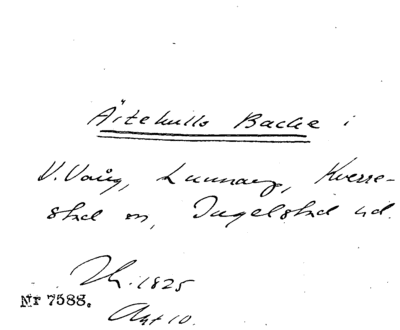 Ärtekulls Backe i
V. Vång, Lunnarp, Kverre-
stad sn, Ingelstad hd.
Th. 1825
Nr 7588.
Akt 10.